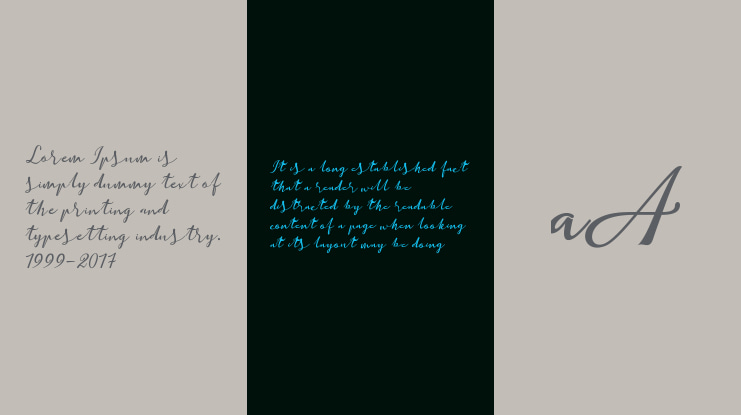 Lorem Ipsum is
simply dummy text of
the printing and
typesetting industry.
1999-2017
It is a long established fact
that a reader will be
distracted by the readable
content of a page when looking
at its layout may be doing
aA